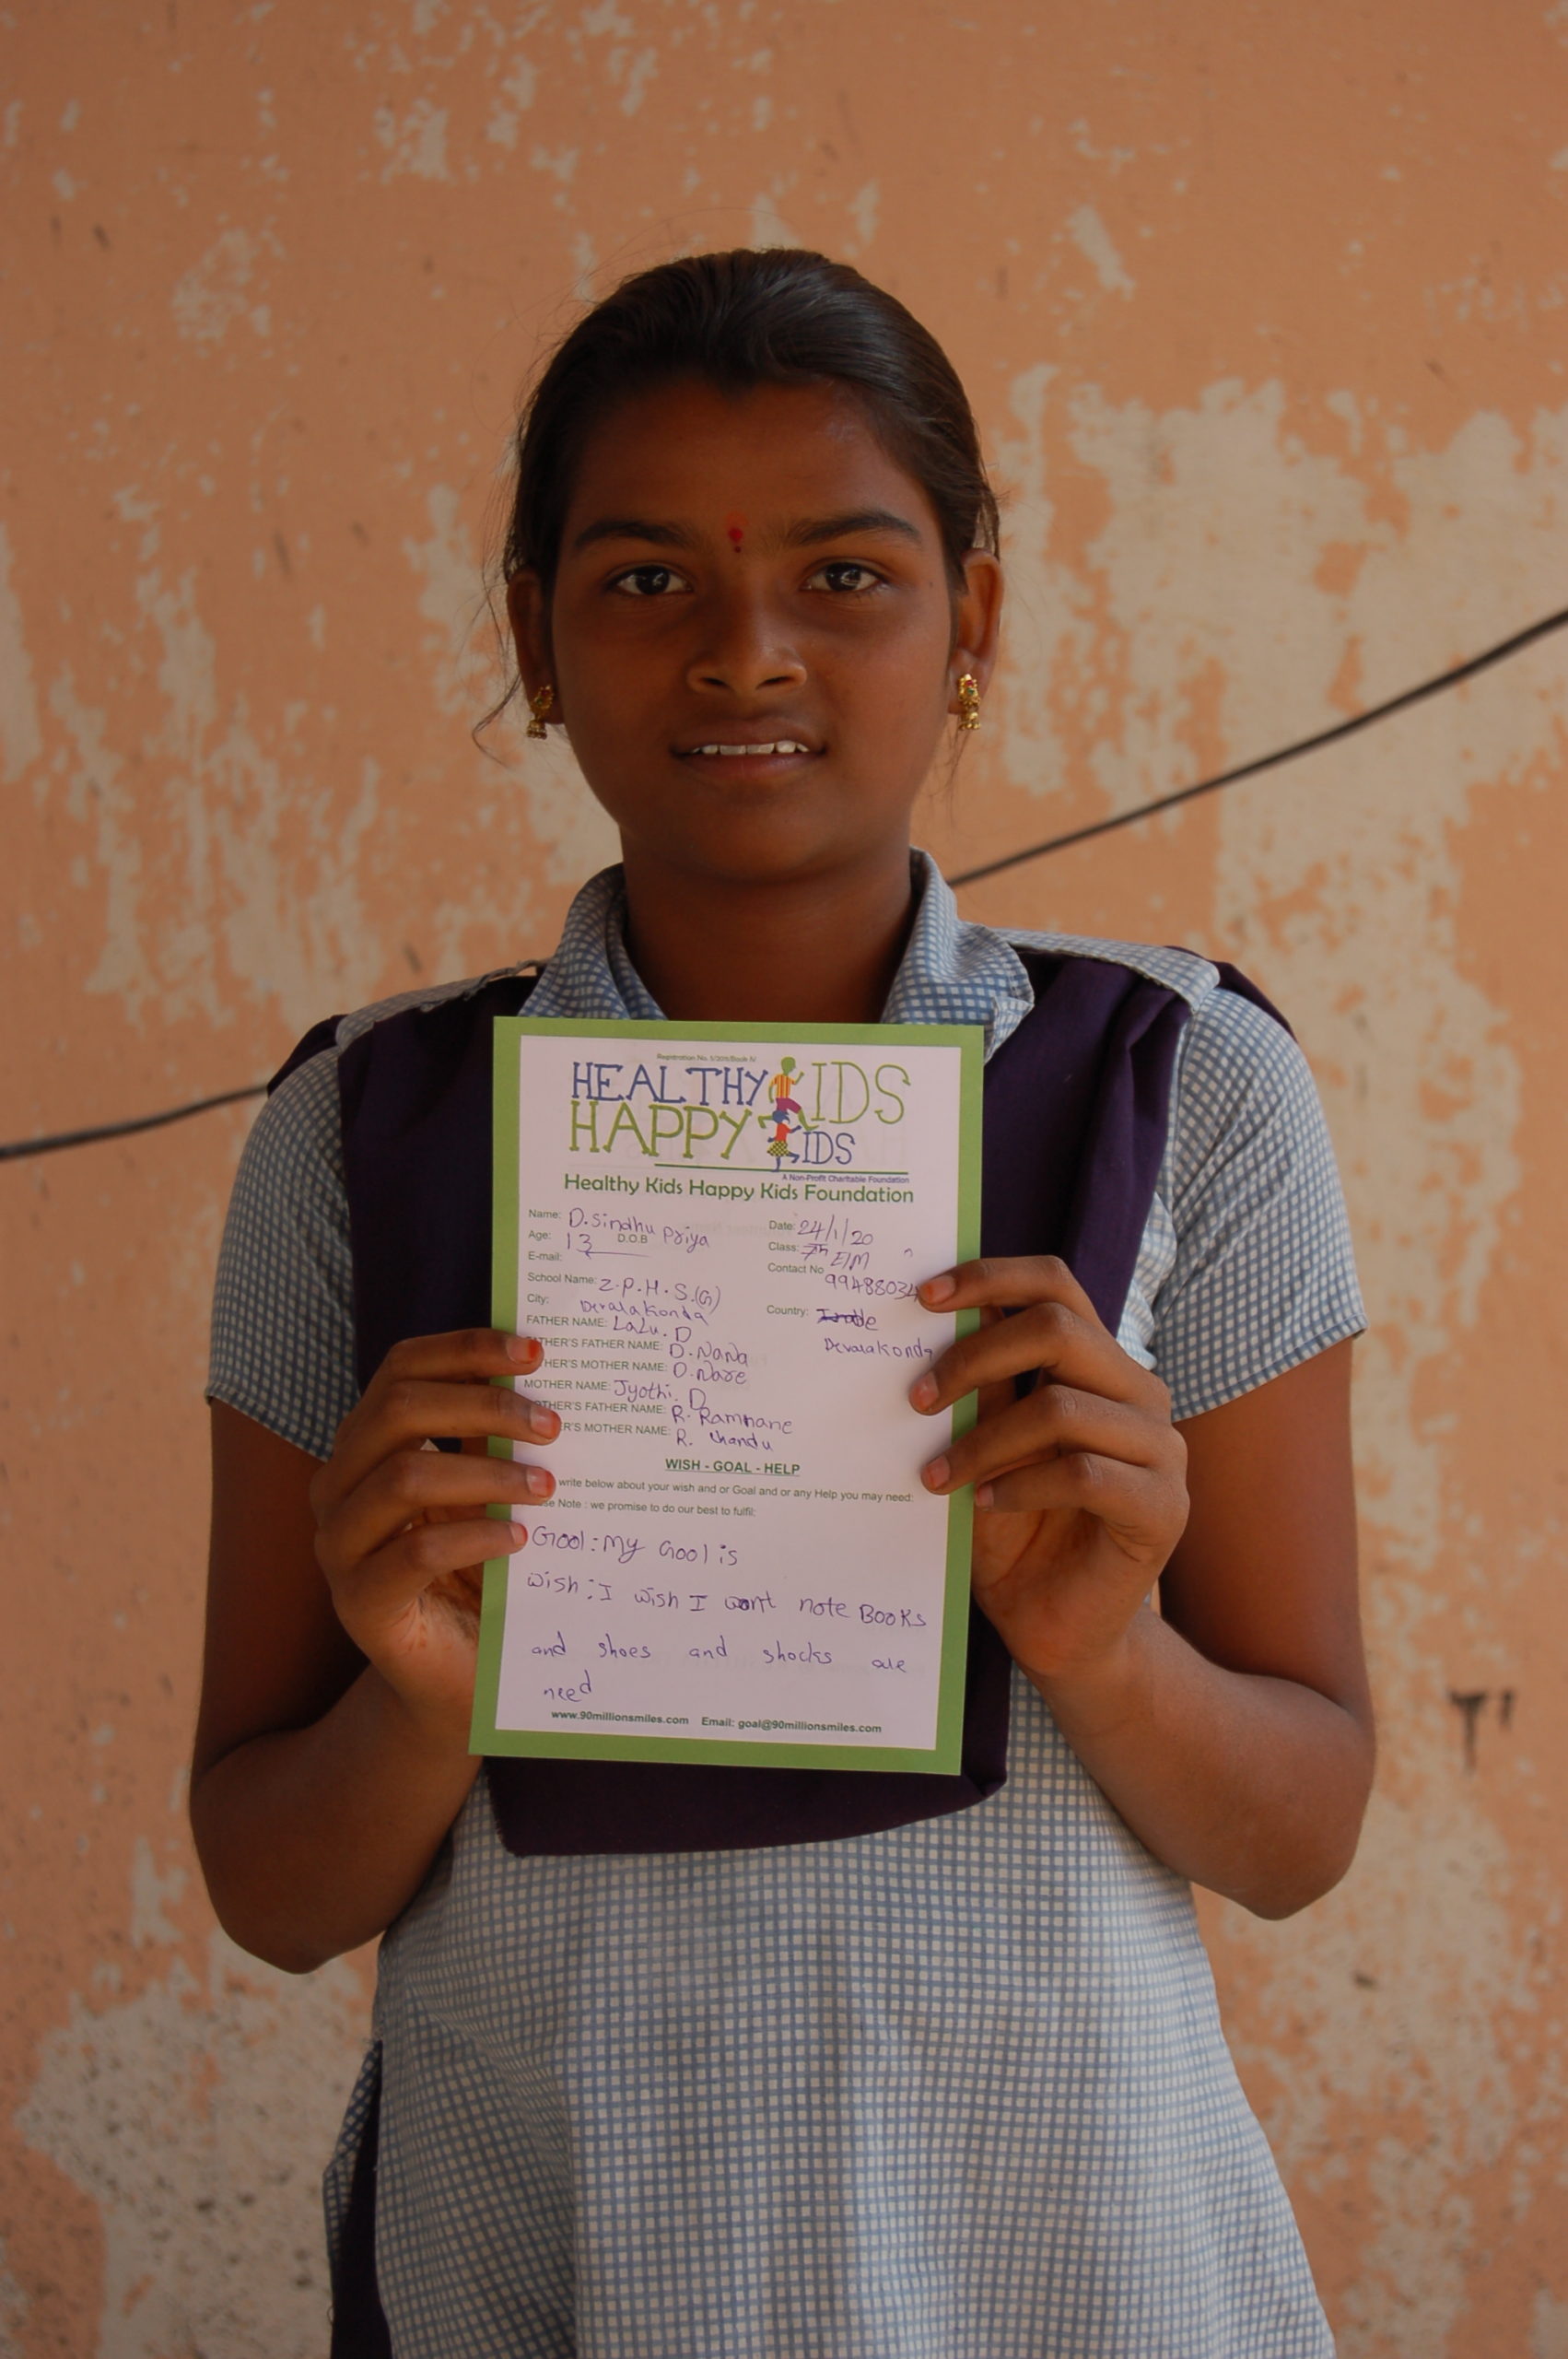 Registration No. 5/2015/Book IV
HEALTHY KIDS
HAPPY KIDS
A Non-Profit Charitable Foundation
Healthy Kids Happy Kids Foundation
Name: D. Sindhu Priya Date: 24/1/20
Age: 13 D.O.B Class: 7th E/M
E-mail: Contact No 99488034
School Name: Z.P.H.S.(G)
City: Devarakonda Country: Devarakonda
FATHER NAME: Lalu. D
FATHER'S FATHER NAME: D. Nana
THER'S MOTHER NAME: D. Nare
MOTHER NAME: Jyothi. D
OTHER'S FATHER NAME: R. Ramnane
ER'S MOTHER NAME: R. Chandu
WISH - GOAL - HELP
write below about your wish and or Goal and or any Help you may need:
se Note : we promise to do our best to fulfil:
Gool : My Gool is
Wish : I wish I want note Books
and shoes and shocks are
need
www.90millionsmiles.com Email: goal@90millionsmiles.com